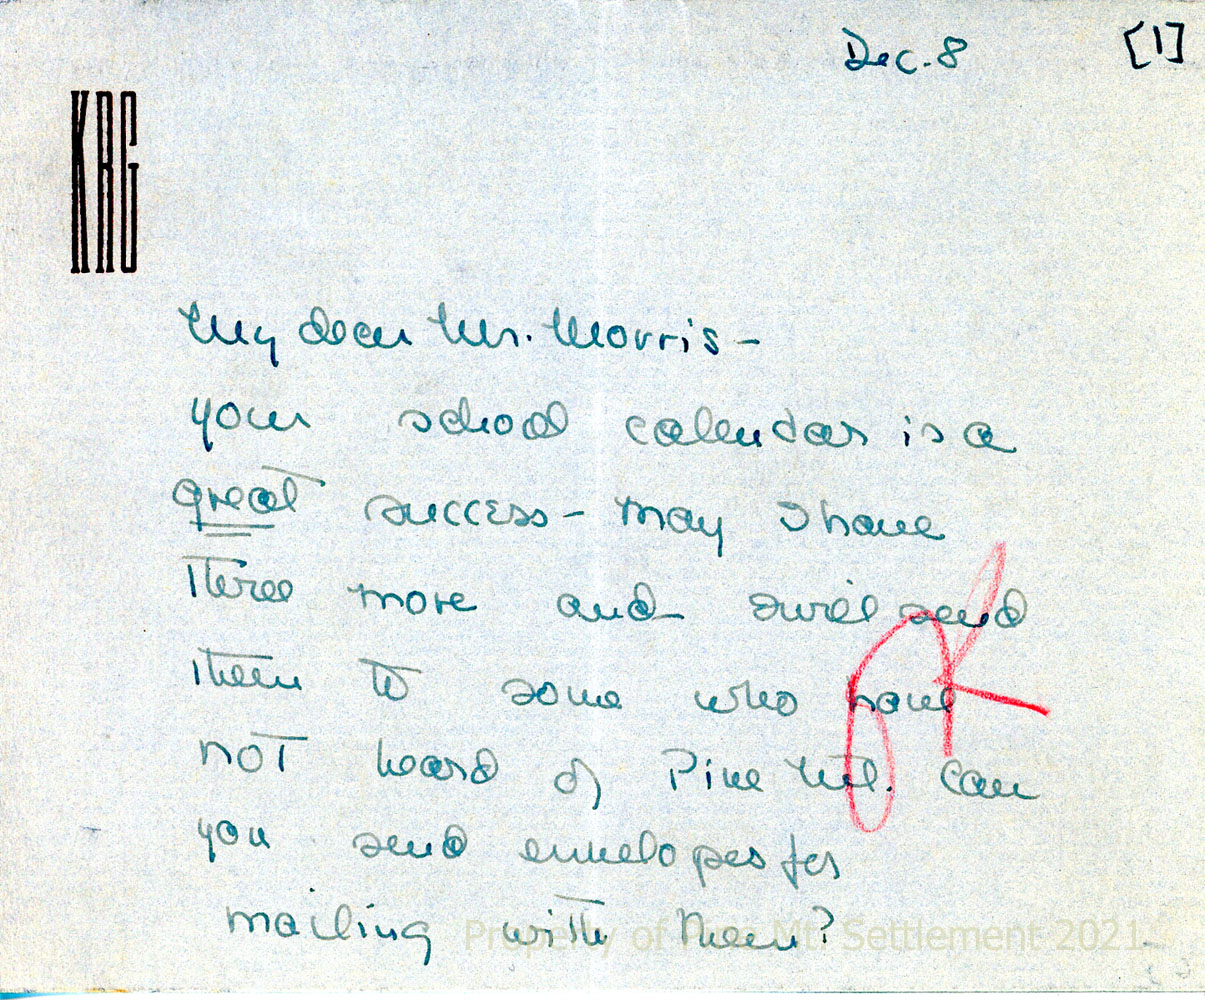 Dec. 8 [1]
KRG
My dear Mr. Morris -
your school calendar is a
great success - may I have
three more and I will send
them to some who have
not heard of Pine Mt. Can
you send envelopes for
mailing with them?
OK
Property of Pine Mt. Settlement 2021